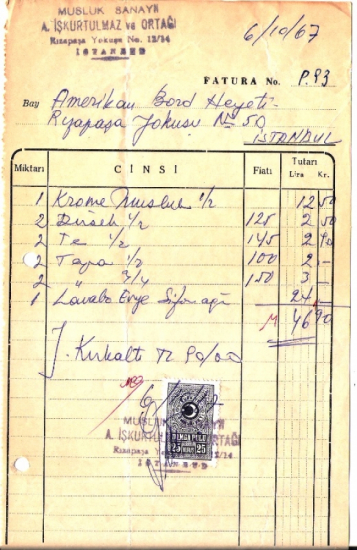 MUSLUK SANAYİİ
A. İŞKURTULMAZ ve ORTAĞI
Rızapaşa Yokuşu No. 12/14
İSTANBUL
6/10/967
FATURA No. P.93
Bay Amerikan Bord Heyeti
Rızapaşa Yokuşu No 50
İSTANBUL
Miktarı CİNSİ Fiatı Tutarı
Lira Kr.
1 Krome Musluk 1/2 12 50
2 Dirsek 1/2 125 2 50
2 Te 1/2 145 2 90
2 Tapa 1/2 100 2 -
2 " 3/4 150 3 -
1 Lavabo Evye Sifonağı 24 -
46 90
Y. Kırkaltı TL 90/00
MUSLUK SANAYİİ
A. İŞKURTULMAZ ve ORTAĞI
DAMGA PULU
25 KURUŞ 25
Rızapaşa Yokuşu No. 12/14
İSTANBUL